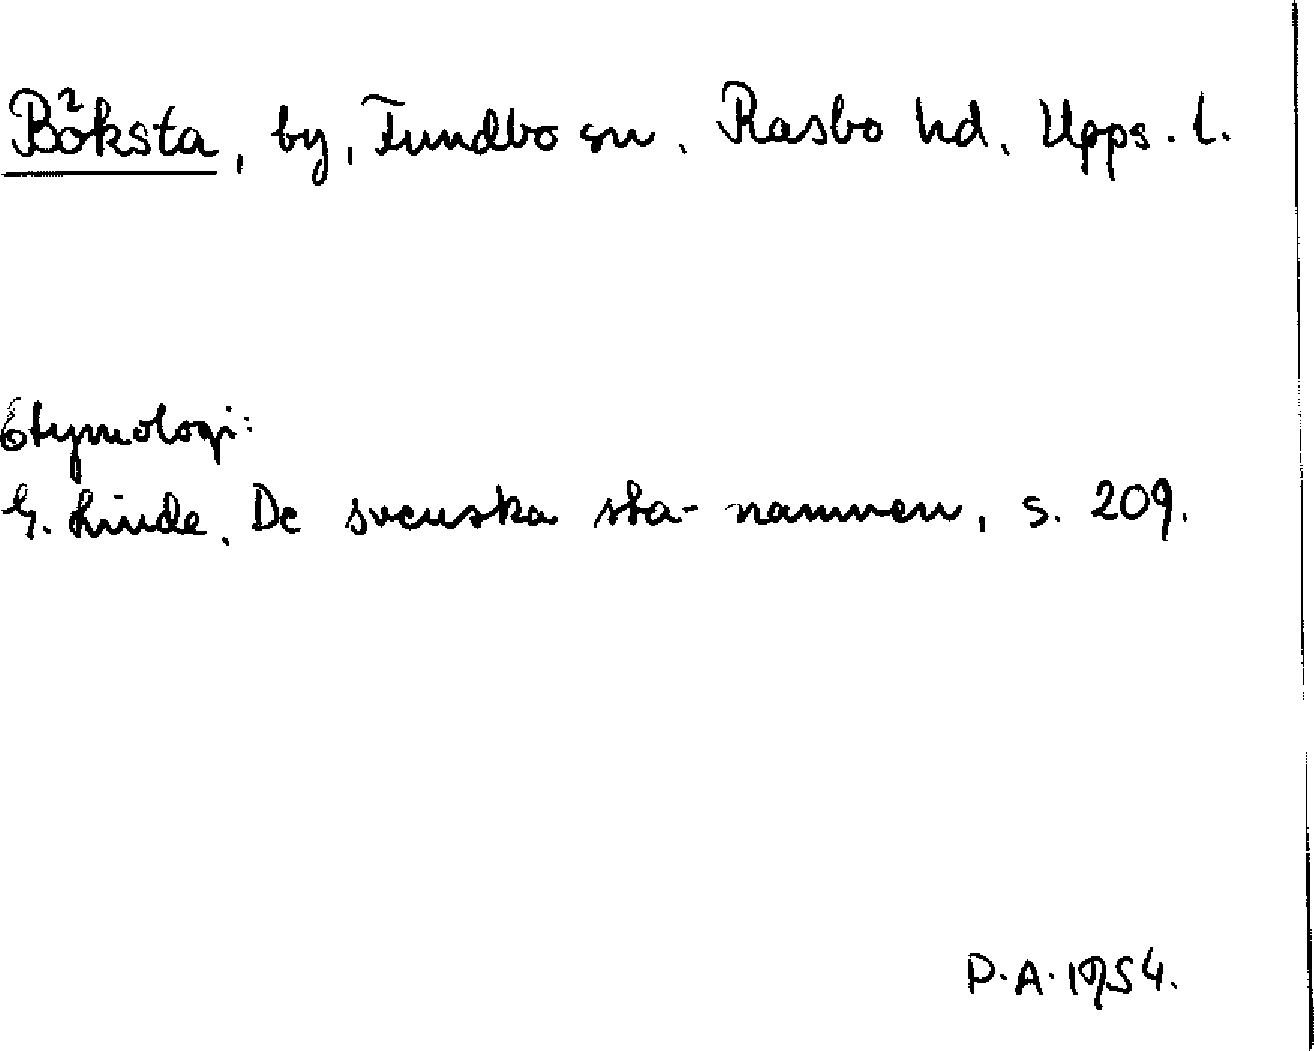 Böksta, by, Fundbo sn, Rasbo hd, Upps. l.
Etymologi:
G. Linde, De svenska sta-namnen, s. 209.
P.A. 1954.